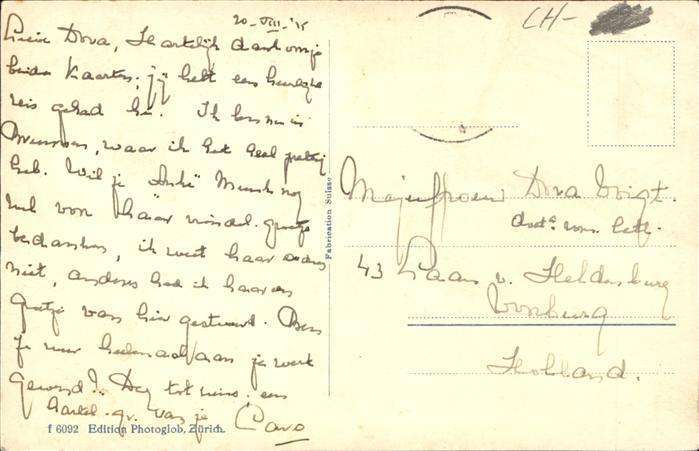 20-VIII-'25
Lieve Dora, Hartelijk dank voor je
beide kaarten, jij hebt een heerlijke
reis gehad hè. Ik ben nu in
waar ik het heel prettig
heb. Wil je nog
wel voor háár vriendel. groetje
bedanken, ik weet haar adres
niet, anders had ik haar een
groetje van hier gestuurd. Ben
je weer heelemaal aan je werk
gewend!! Dag tot ziens. een
hartel. gr. van je
CH-
Fabrication Suisse
Mejuffrouw Dora Voigt.
43 Laan v. Heldenburg
Voorburg
Holland.
f 6092 Edition Photoglob, Zürich.